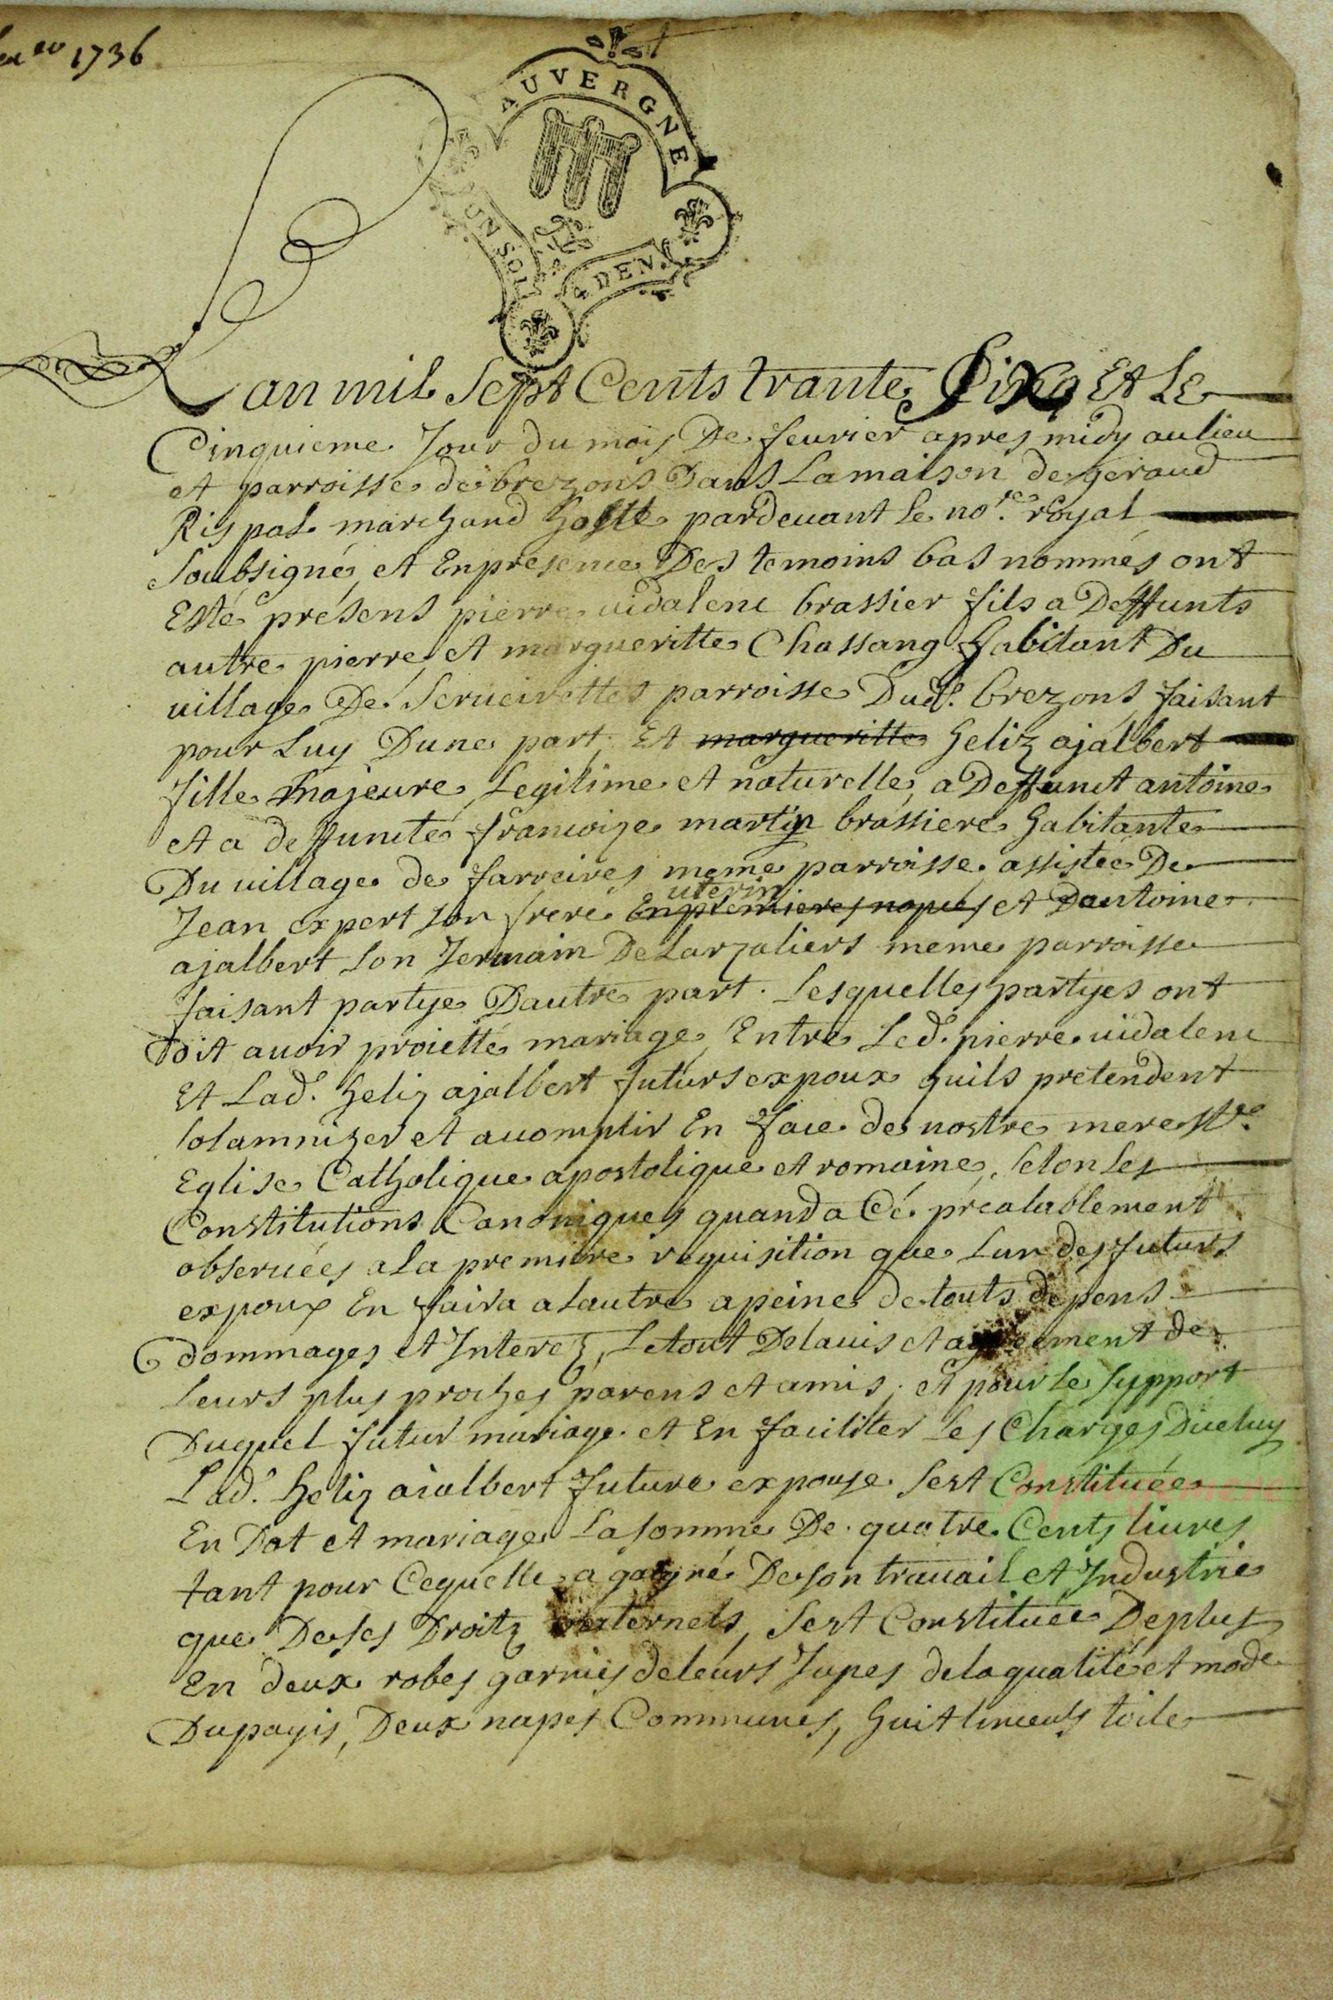 1736
AUVERGNE
UN SOL
4 DEN.
Lan mil Sept Cents trante Six Et Le
Cinquieme Jour du mois De feurier apres midy au lieu
et parroisse de brezons Dans La maison de geraud
Rispal marchand hoste pardeuant Le no.re royal
Soubsigné et En presence Des temoins bas nommés ont
Esté présens pierre uidalenc brassier fils a Deffunts
autre pierre et margueritte Chassang habitant Du
uillage De Serueirettes parroisse Dud. brezons faisant
pour Luy Dune part, Et margueritte heliz ajalbert
fille majeure Legitime et naturelle a Deffunct antoine
et a deffuncte francoize martin brassiere habitante
Du uillage de farreires meme parroisse assistée De
uterin
Jean expert son frere En premieres nopces et Dantoine
ajalbert son Jermain De Larzaliers meme parroisse
faisant partye Dautre part. Lesquelles partyes ont
Dit auoir proietté mariage Entre Led. pierre uidalenc
Et Lad. heliz ajalbert futurs expoux quils pretendent
solamnizer et acomplir En face de nostre mere Ste
Eglise Catholique apostolique et romaine, selon Les
Constitutions Canoniques quand a Cé préalablement
obseruées a La premiere requisition que Lun des futurs
expoux En faira a Lautre a peine de touts dépens
dommages et Interez, Le tout De Lauis et agreement de
Leurs plus proches parens et amis, et pour Le support
Duquel futur mariage et En faciliter Les Charges Diceluy
Lad. heliz aialbert future expouse sest Constituée
En Dot et mariage La somme De quatre Cents liures
tant pour Cequelle a gaigné De son trauail et Industrie
que De ses Droitz maternels, sest Constituée De plus
En deux robes garnies de leurs Jupes de la qualité et mode
Du payis, Deux napes Communes, huit linceuls toile